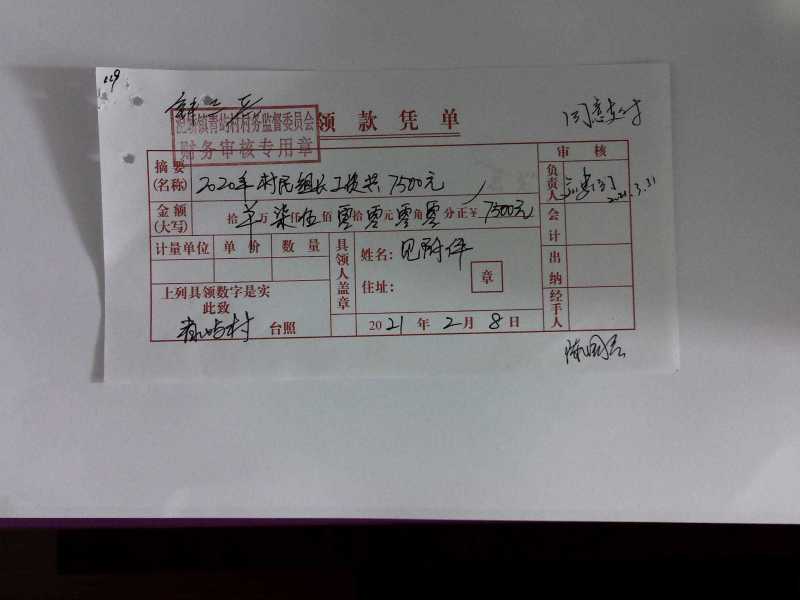 119
领款凭单
同意支付
镇青屿村村务监督委员会
财务审核专用章
摘要
(名称)
2020年村民组长工资共7500元
金额
(大写)
拾 万 柒仟伍佰零拾零元零角零分正¥7500元
计量单位 单价 数量
上列具领数字是实
此致
青屿村 台照
具领人盖章
姓名: 见附件
住址:
章
2021年2月8日
审核
负责人
2021.3.31
会计
出纳
经手人